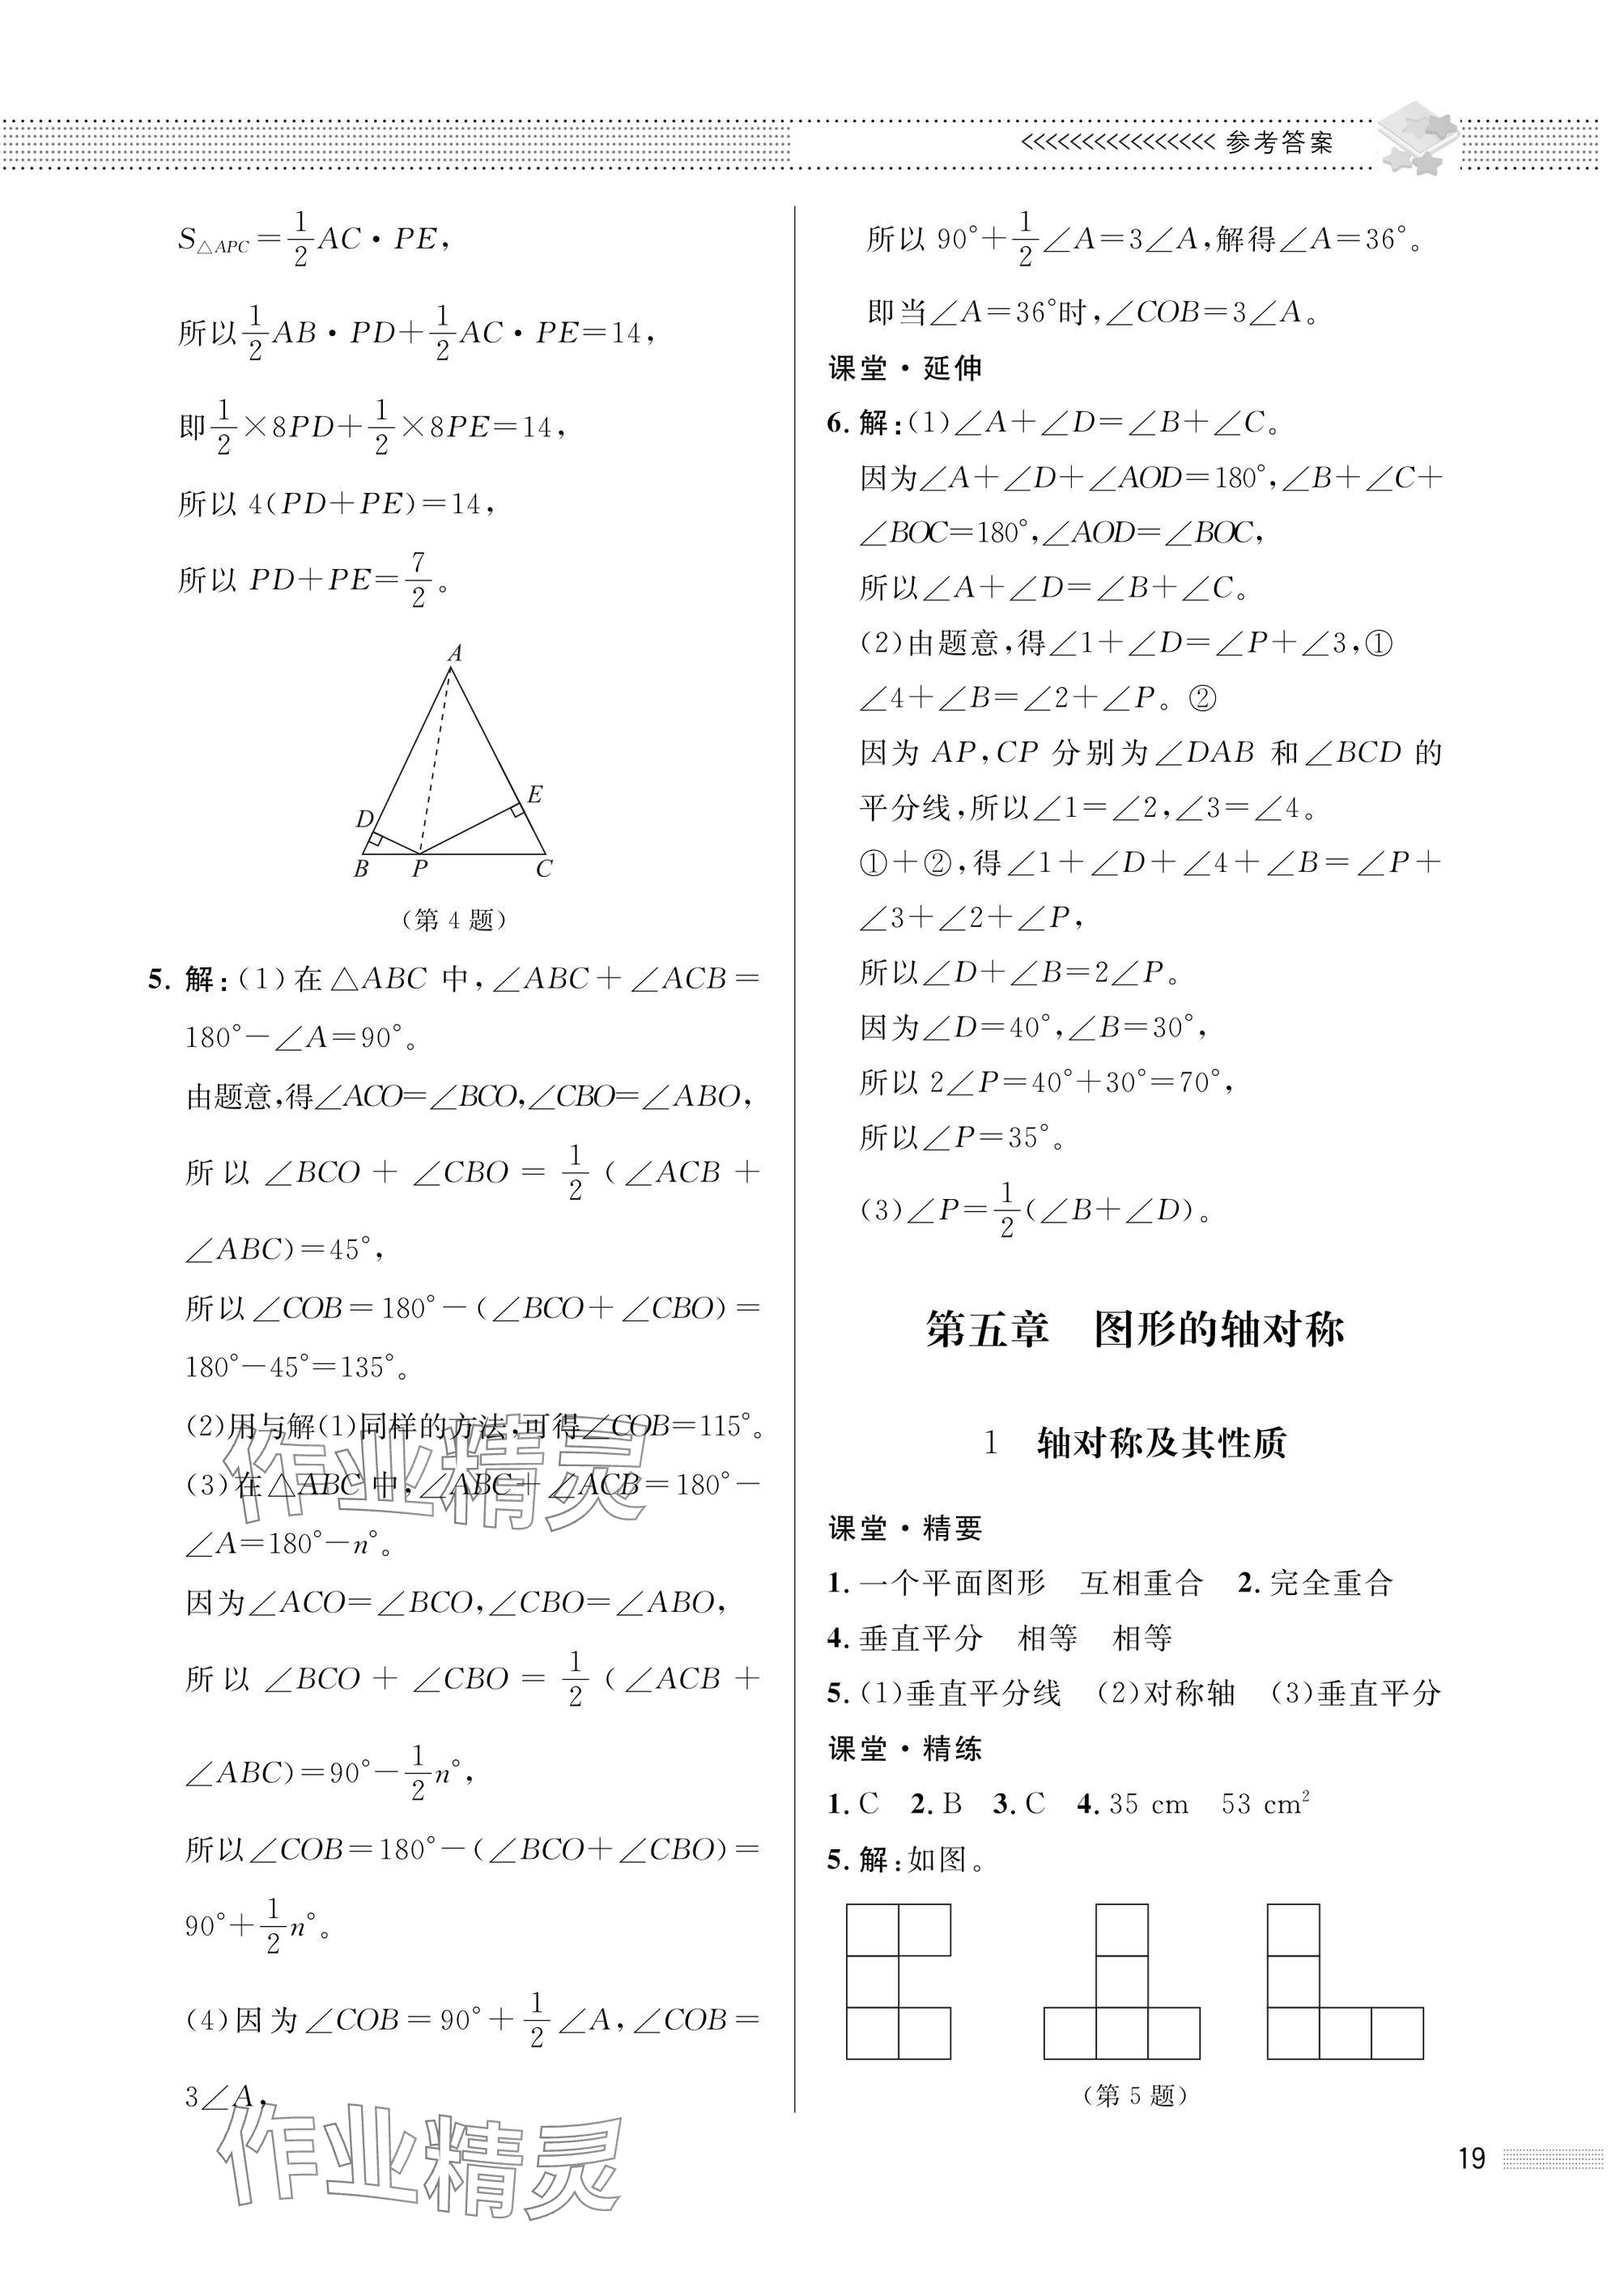 <<<<<<<<<<<<<<<< 参考答案
S△APC=1/2AC·PE,
所以1/2AB·PD+1/2AC·PE=14,
即1/2×8PD+1/2×8PE=14,
所以 4(PD+PE)=14,
所以 PD+PE=7/2。
A
D
E
B P C
(第 4 题)
5. 解:(1)在△ABC 中,∠ABC+∠ACB=
180°-∠A=90°。
由题意,得∠ACO=∠BCO,∠CBO=∠ABO,
所以 ∠BCO + ∠CBO = 1/2 (∠ACB +
∠ABC)=45°,
所以∠COB=180°-(∠BCO+∠CBO)=
180°-45°=135°。
(2)用与解(1)同样的方法,可得∠COB=115°。
(3)在△ABC 中,∠ABC+∠ACB=180°-
∠A=180°-n°。
因为∠ACO=∠BCO,∠CBO=∠ABO,
所以 ∠BCO + ∠CBO = 1/2 (∠ACB +
∠ABC)=90°-1/2n°,
所以∠COB=180°-(∠BCO+∠CBO)=
90°+1/2n°。
(4)因为∠COB=90°+1/2∠A,∠COB=
3∠A,
所以 90°+1/2∠A=3∠A,解得∠A=36°。
即当∠A=36°时,∠COB=3∠A。
课堂·延伸
6. 解:(1)∠A+∠D=∠B+∠C。
因为∠A+∠D+∠AOD=180°,∠B+∠C+
∠BOC=180°,∠AOD=∠BOC,
所以∠A+∠D=∠B+∠C。
(2)由题意,得∠1+∠D=∠P+∠3,①
∠4+∠B=∠2+∠P。②
因为 AP,CP 分别为∠DAB 和∠BCD 的
平分线,所以∠1=∠2,∠3=∠4。
①+②,得∠1+∠D+∠4+∠B=∠P+
∠3+∠2+∠P,
所以∠D+∠B=2∠P。
因为∠D=40°,∠B=30°,
所以 2∠P=40°+30°=70°,
所以∠P=35°。
(3)∠P=1/2(∠B+∠D)。
第五章 图形的轴对称
1 轴对称及其性质
课堂·精要
1. 一个平面图形 互相重合 2. 完全重合
4. 垂直平分 相等 相等
5. (1)垂直平分线 (2)对称轴 (3)垂直平分
课堂·精练
1. C 2. B 3. C 4. 35 cm 53 cm²
5. 解:如图。
(第 5 题)
作业精灵
作业精灵
19